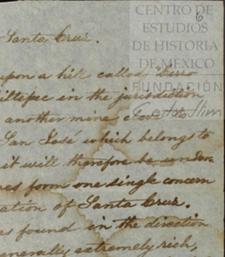 CENTRO DE
ESTUDIOS
DE HISTORIA
DE MÉXICO
FUNDACIÓN
Carlos Slim
6
Santa Cruz.
upon a hill called Cerro
iltepec in the jurisdiction
another mine close to
San José which belongs to
it will therefore be un
form one single concern
ation of Santa Cruz.
as found in the direction
generally extremely rich,